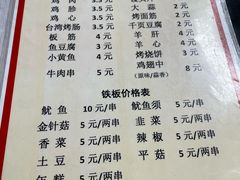 鸡 3.5元 大蒜 2元
鸡心 3.5元 烤面筋 2元
台湾烤肠 3.5元 千页豆腐 3元
板筋 4元 羊肝 4元
鱼豆腐 3元 羊心 4元
小黄鱼 4元 烤烧饼 3元
牛肉串 5元 鸡翅中 8元
(原味/蒜香)
铁板价格表
鱿鱼 10元/串 鱿鱼须 5元/串
金针菇 5元/两串 韭菜 5元/两串
香菜 5元/两串 辣椒 5元/两串
土豆 5元/两串 平菇 5元/两串
年糕 5元/两串